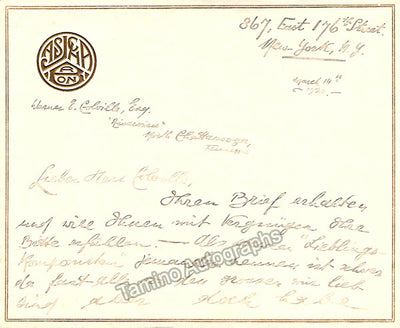 867, East 176th Street.
New York, N.Y.
March 14th
Warner E. Colville, Esq.
"Riverview"
North Chattanooga,
Lieber Herr Colville,
Ihren Brief erhalten
und will Ihnen mit Vergnügen Ihre
Bitte erfüllen. — Als meinen Lieblings-
Komponisten jemand nennen ist schwer
da fast alle den grossen mir lieb
sind aber doch
Tamino Autographs